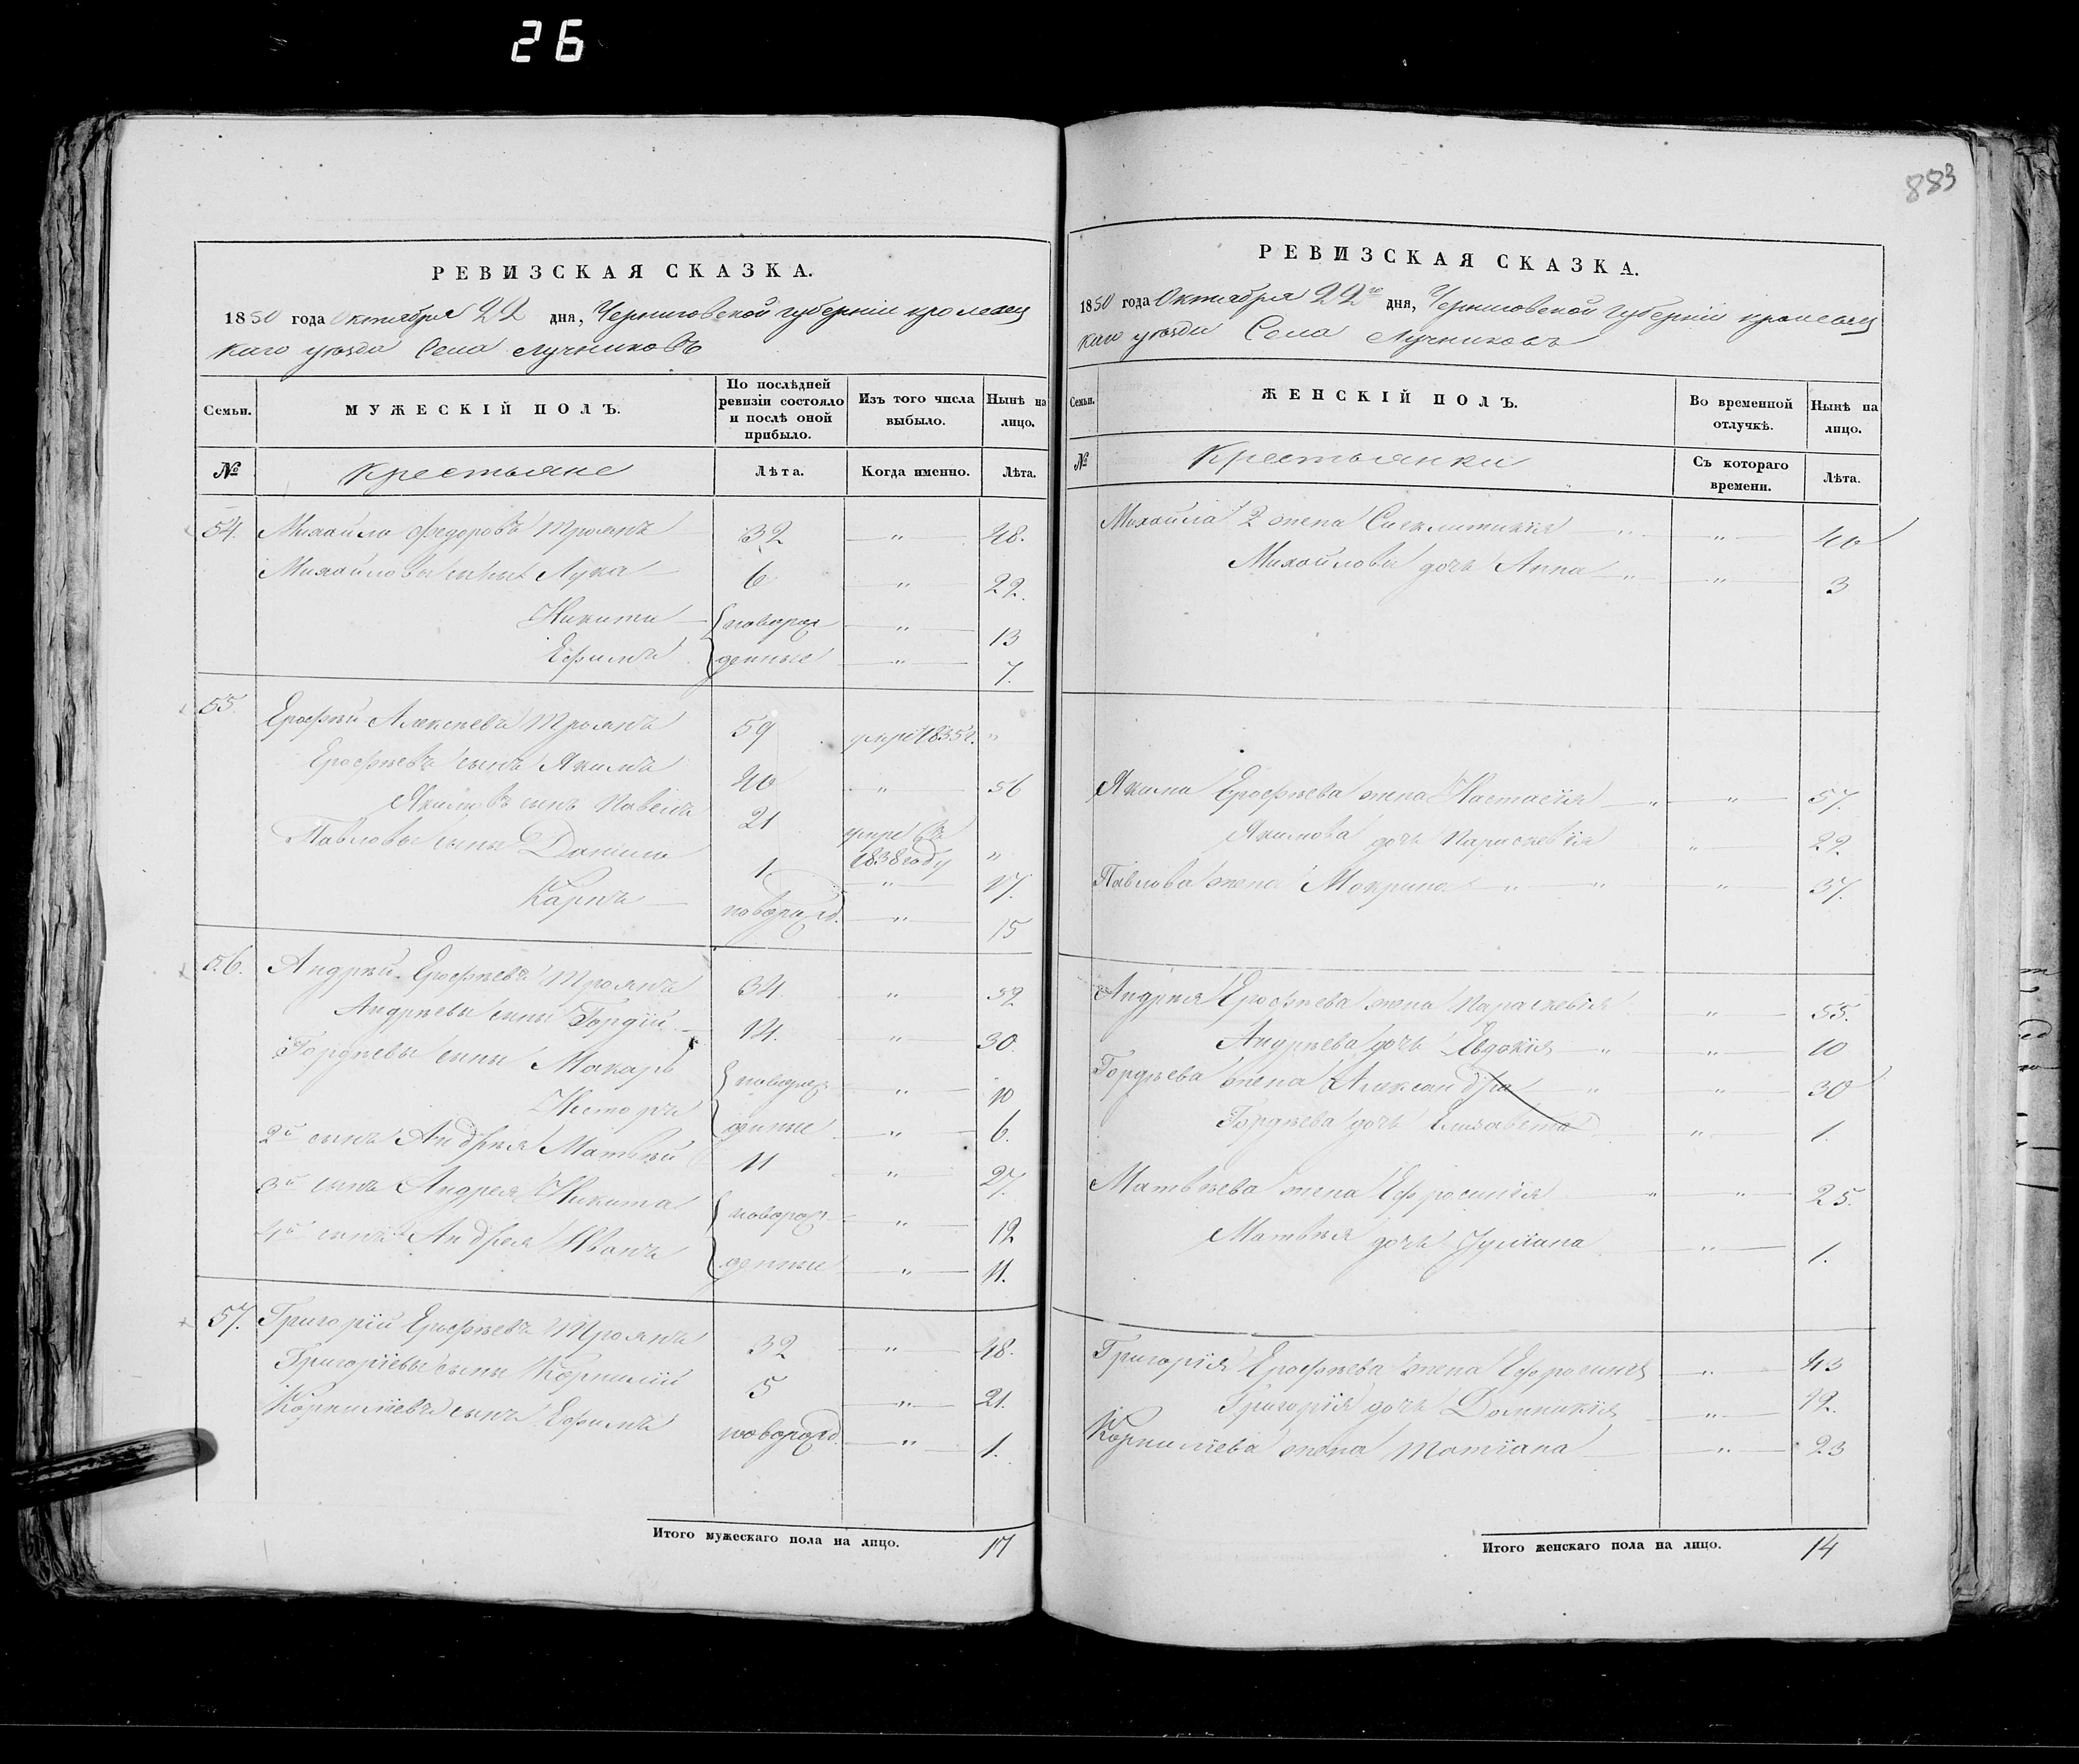 26
883
РЕВИЗСКАЯ СКАЗКА.
1850 года Октября 22 дня, Черниговской губерніи кролевец
каго уѣзда Села Лучниковъ
Семьи. МУЖЕСКІЙ ПОЛЪ. По послѣдней ревизіи состояло и послѣ оной прибыло. Изъ того числа выбыло. Нынѣ на лицо.
№ Крестьяне Лѣта. Когда именно. Лѣта.
54. Михайло Федоровъ Троянъ 32 " 48.
Михайловы сыны Лука 6 " 22.
Никита новорож " 13
Ефимъ денные " 7.
55. Ерофѣй Алексѣевъ Троянъ 59 умре 1835 г. "
Ерофѣевъ сынъ Якимъ 40 " 56
Якимовъ сынъ Павелъ 21 умре въ 1838 году "
Павловы сыны Даніило 1. " 17.
Карпъ новорожд. " 15
56. Андрѣй Ерофѣевъ Троянъ 34. "
Андрѣевы сыны Гордій 14. " 30.
Гордѣевы сыны Макаръ новорож " 10
Несторъ денные " 6.
2й сынъ Андрѣя Матвѣй 11 " 27.
3й сынъ Андрея Никита новорож " 12
4й сынъ Андрея Иванъ денные " 11.
57. Григорій Ерофѣевъ Троянъ 32 " 48.
Григоріевы сыны Корнилій 5 " 21.
Корниліевъ сынъ Ефимъ новорожд. " 1.
Итого мужескаго пола на лицо. 17
РЕВИЗСКАЯ СКАЗКА.
1850 года Октября 22го дня, Черниговской губерніи кролевец
каго уѣзда Села Лучниковъ
Семьи. ЖЕНСКІЙ ПОЛЪ. Во временной отлучкѣ. Нынѣ на лицо.
№ Крестьянки Съ котораго времени. Лѣта.
Михайла 2 жена " 40
Михайлова дочь Анна " 3
Якима Ерофѣева жена Настасія " 57.
Якимова дочь Параскевія " 22.
Павлова жена Мокрина " 37.
Андрѣя Ерофѣева жена Параскевія " 55.
Андрѣева дочь Евдокія " 10
Гордѣева жена Александра " 30
Гордѣева дочь Елизавета " 1.
Матвѣева жена Ефросинія " 25.
Матвѣя дочь Іуліана " 1.
Григорія Ерофѣева жена Ефросинія " 43
Григорія дочь Домникія " 12.
Корниліева жена Татіана " 23
Итого женскаго пола на лицо. 14